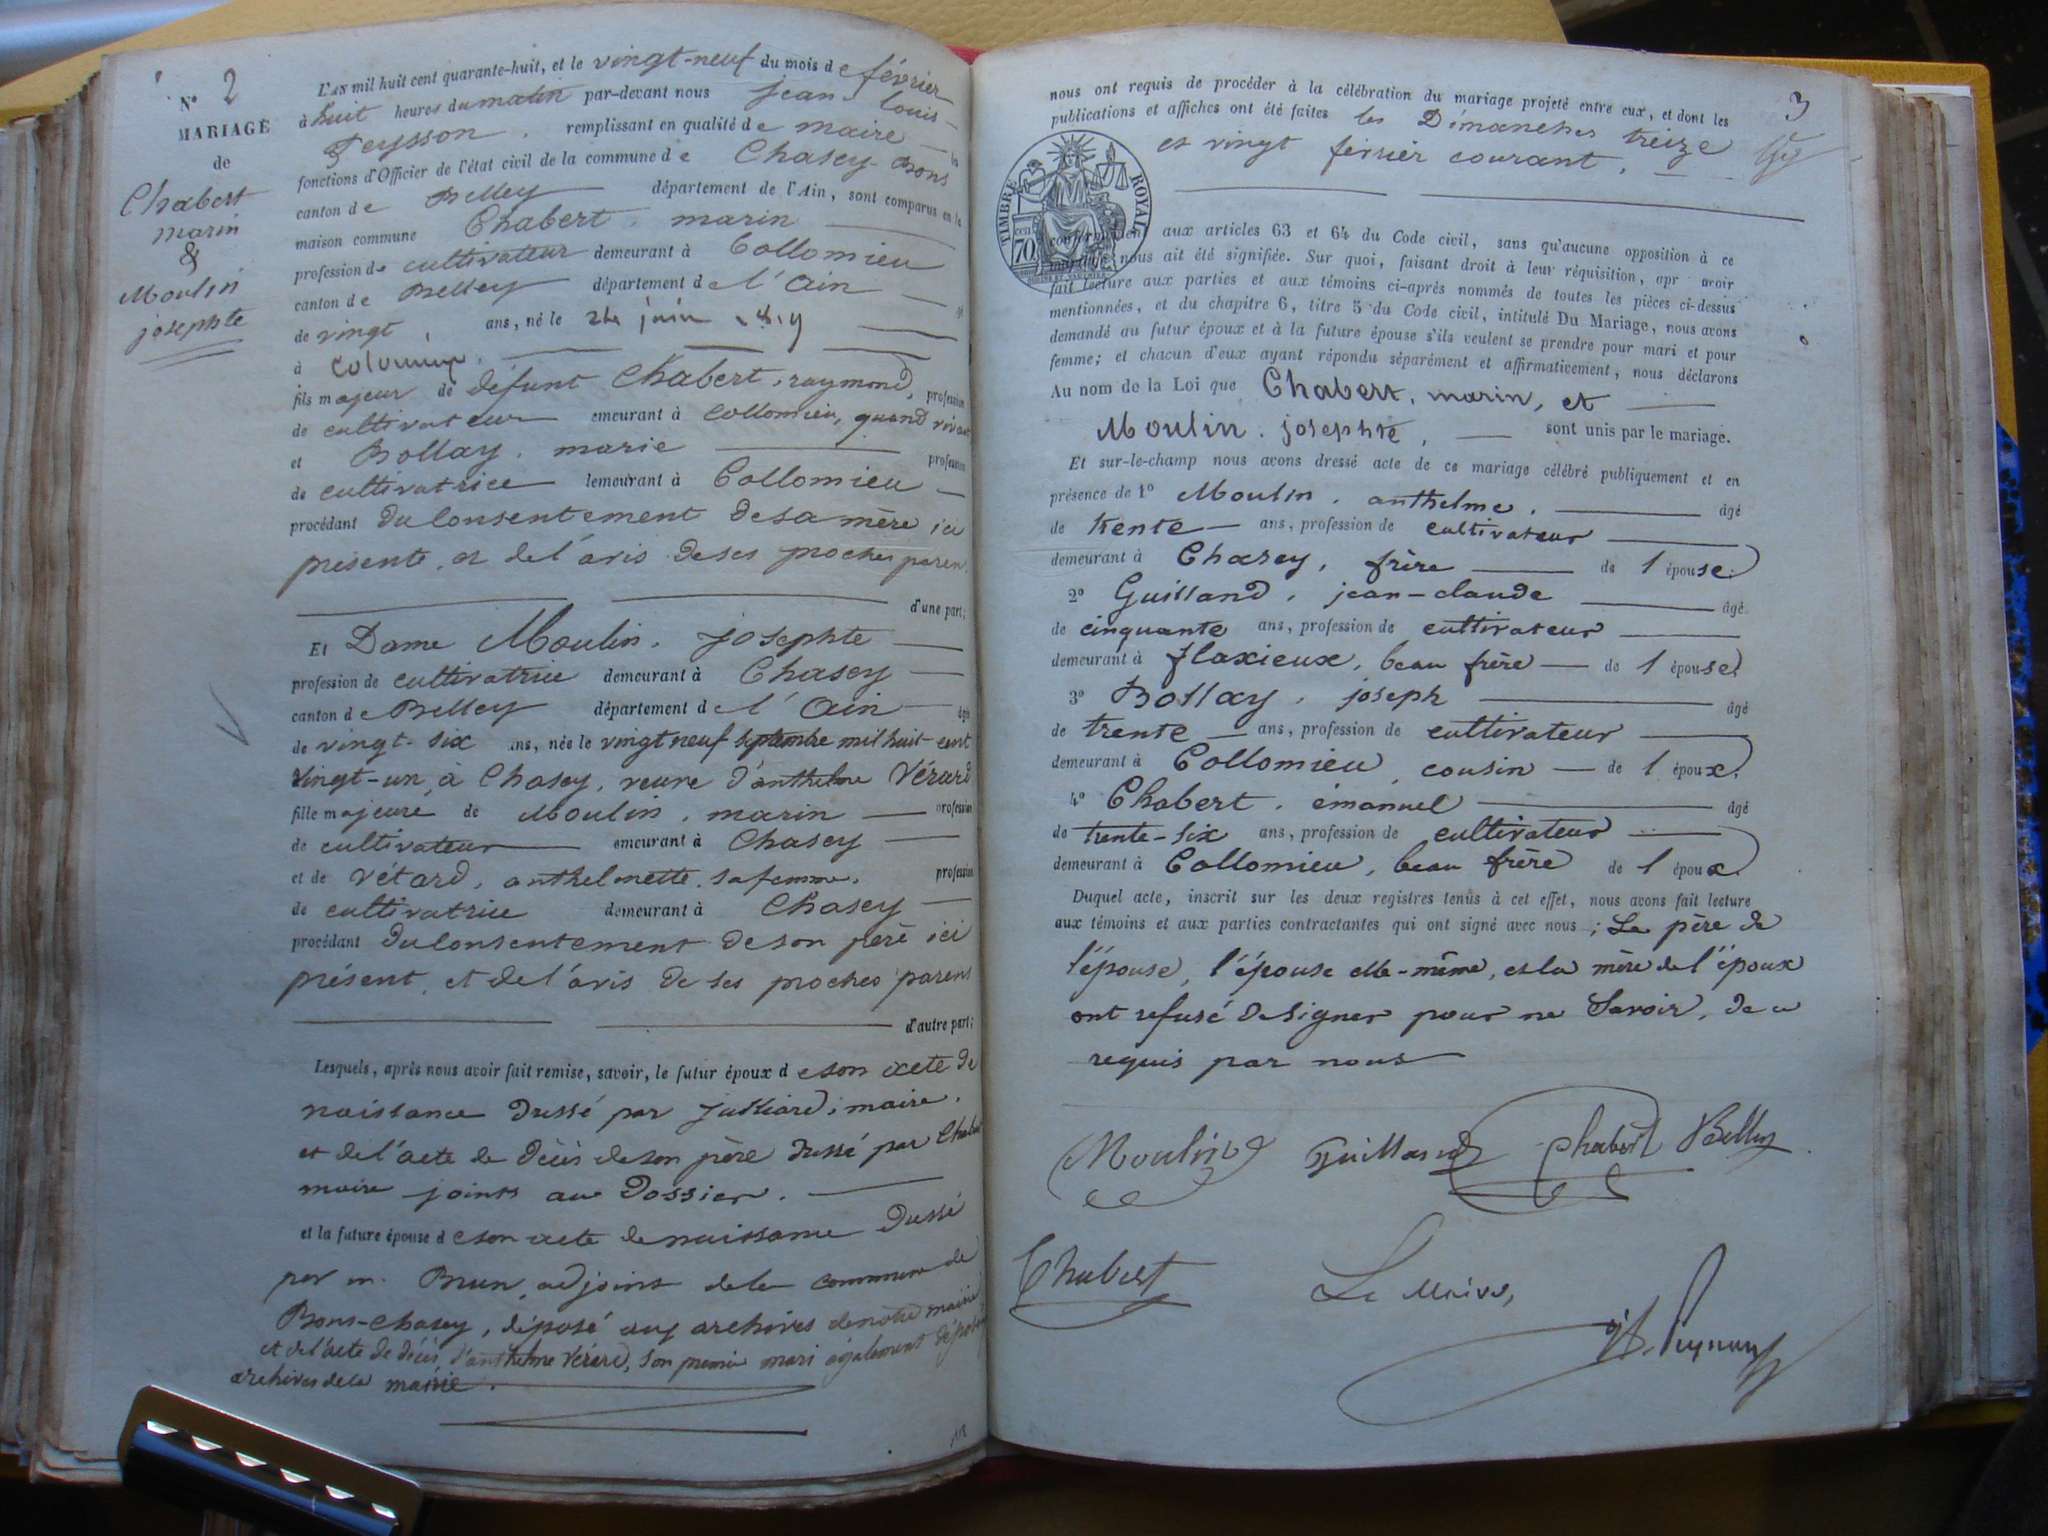 N° 2
MARIAGE
de
Chabert
marin
&
Moulin
josephte
L'AN mil huit cent quarante-huit, et le vingt-neuf du mois de février
à huit heures du matin par-devant nous jean-louis-
Peysson, remplissant en qualité de maire
fonctions d'Officier de l'état civil de la commune de Chasey-Bons
canton de Belley département de l'Ain, sont comparus en la
maison commune Chabert, marin
profession de cultivateur demeurant à Collomieu
canton de Belley département de l'Ain
de vingt ans, né le 24 juin
à
fils majeur de défunt Chabert, raymond, profession
de cultivateur demeurant à Collomieu, quand vivait
et Bollay, marie profession
de cultivatrice demeurant à Collomieu
procédant du consentement de sa mère ici
présente, et de l'avis de ses proches parens
d'une part;
Et Dame Moulin, josephte
profession de cultivatrice demeurant à Chasey
canton de Belley département de l'Ain âgée
de vingt-six ans, née le vingt neuf septembre mil huit-cent
vingt-un, à Chasey, veuve d'anthelme Vérard
fille majeure de Moulin, marin profession
de cultivateur demeurant à Chasey
et de Vétard, anthelmette, sa femme, profession
de cultivatrice demeurant à Chasey
procédant du consentement de son père ici
présent, et de l'avis de ses proches parens
d'autre part;
Lesquels, après nous avoir fait remise, savoir, le futur époux de son acte de
naissance dressé par julliard, maire,
et de l'acte de décès de son père dressé par Chabert
maire joints au Dossier.
et la future épouse de son acte de naissance dressé
par m. Brun, adjoint de la commune de
Bons-Chasey, déposé aux archives de notre mairie
et de l'acte de décès d'anthelme Vérard, son premier mari également déposé aux
archives de la mairie.
3
nous ont requis de procéder à la célébration du mariage projeté entre eux, et dont les
publications et affiches ont été faites les Dimanches treize
et vingt février courant,
TIMBRE ROYAL
70
conformément aux articles 63 et 64 du Code civil, sans qu'aucune opposition à ce
mariage nous ait été signifiée. Sur quoi, faisant droit à leur réquisition, apr avoir
fait lecture aux parties et aux témoins ci-après nommés de toutes les pièces ci-dessus
mentionnées, et du chapitre 6, titre 5 du Code civil, intitulé Du Mariage, nous avons
demandé au futur époux et à la future épouse s'ils veulent se prendre pour mari et pour
femme; et chacun d'eux ayant répondu séparément et affirmativement, nous déclarons
Au nom de la Loi que Chabert, marin, et
Moulin, josephte, sont unis par le mariage.
Et sur-le-champ nous avons dressé acte de ce mariage célébré publiquement et en
présence de 1° Moulin, anthelme, âgé
de trente ans, profession de cultivateur
demeurant à Chasey, frère de l'épouse.
2° Guilland, jean-claude âgé
de cinquante ans, profession de cultivateur
demeurant à flaxieux, beau frère de l'épouse
3° Bollay, joseph âgé
de trente ans, profession de cultivateur
demeurant à Collomieu, cousin de l'époux.
4° Chabert, émanuel âgé
de trente-six ans, profession de cultivateur
demeurant à Collomieu, beau frère de l'époux.
Duquel acte, inscrit sur les deux registres tenus à cet effet, nous avons fait lecture
aux témoins et aux parties contractantes qui ont signé avec nous; Le père de
l'épouse, l'épouse elle-même, et la mère de l'époux
ont refusé de signer pour ne Savoir, de ce
requis par nous
Moulin Guilland Chabert Bolley
Chabert Le Maire,